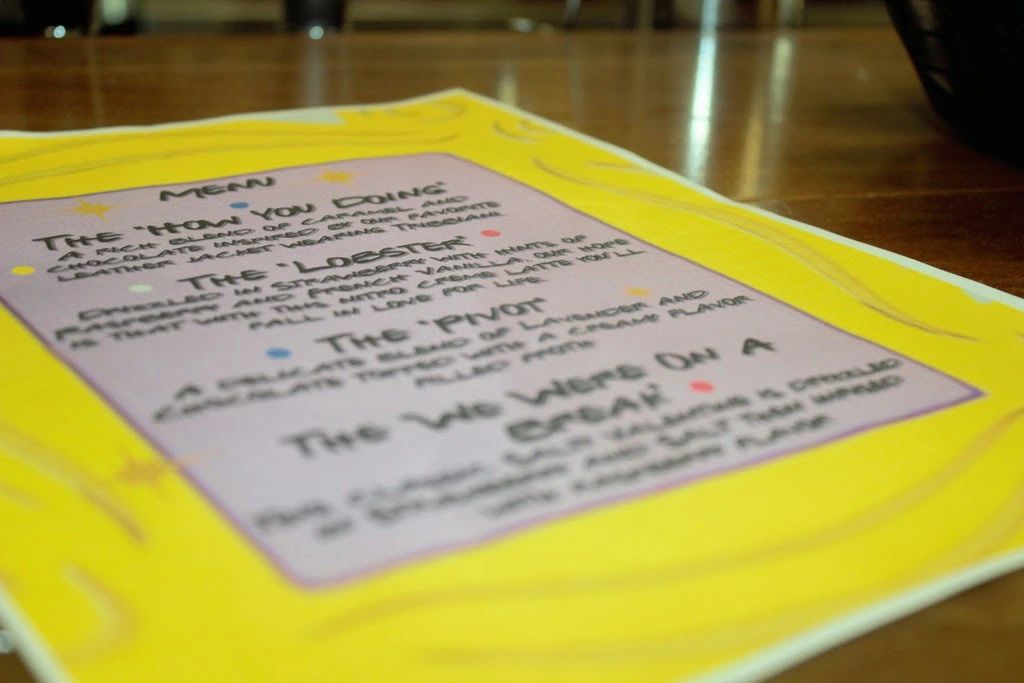 MENU
THE "HOW YOU DOING"
A RICH BLEND OF CARAMEL AND
CHOCOLATE INSPIRED BY OUR FAVOURITE
LEATHER JACKET WEARING TRIBBIANI.
THE 'LOBSTER'
DRIZZLED IN STRAWBERRY WITH HINTS OF
RASPBERRY AND FRENCH VANILLA. OUR HOPE
IS THAT WITH THIS NITRO CREME LATTE YOU'LL
FALL IN LOVE FOR LIFE.
THE "PIVOT"
A DELICATE BLEND OF LAVENDER AND
CHOCOLATE TOPPED WITH A CREAMY FLAVOR
FILLED FROTH
THE "WE WERE ON A
BREAK"
THIS CLASSIC SALTY VALENTINE IS DRIZZLED
IN STRAWBERRY AND SALT THEN INFUSED
WITH RASPBERRY FLAVOR